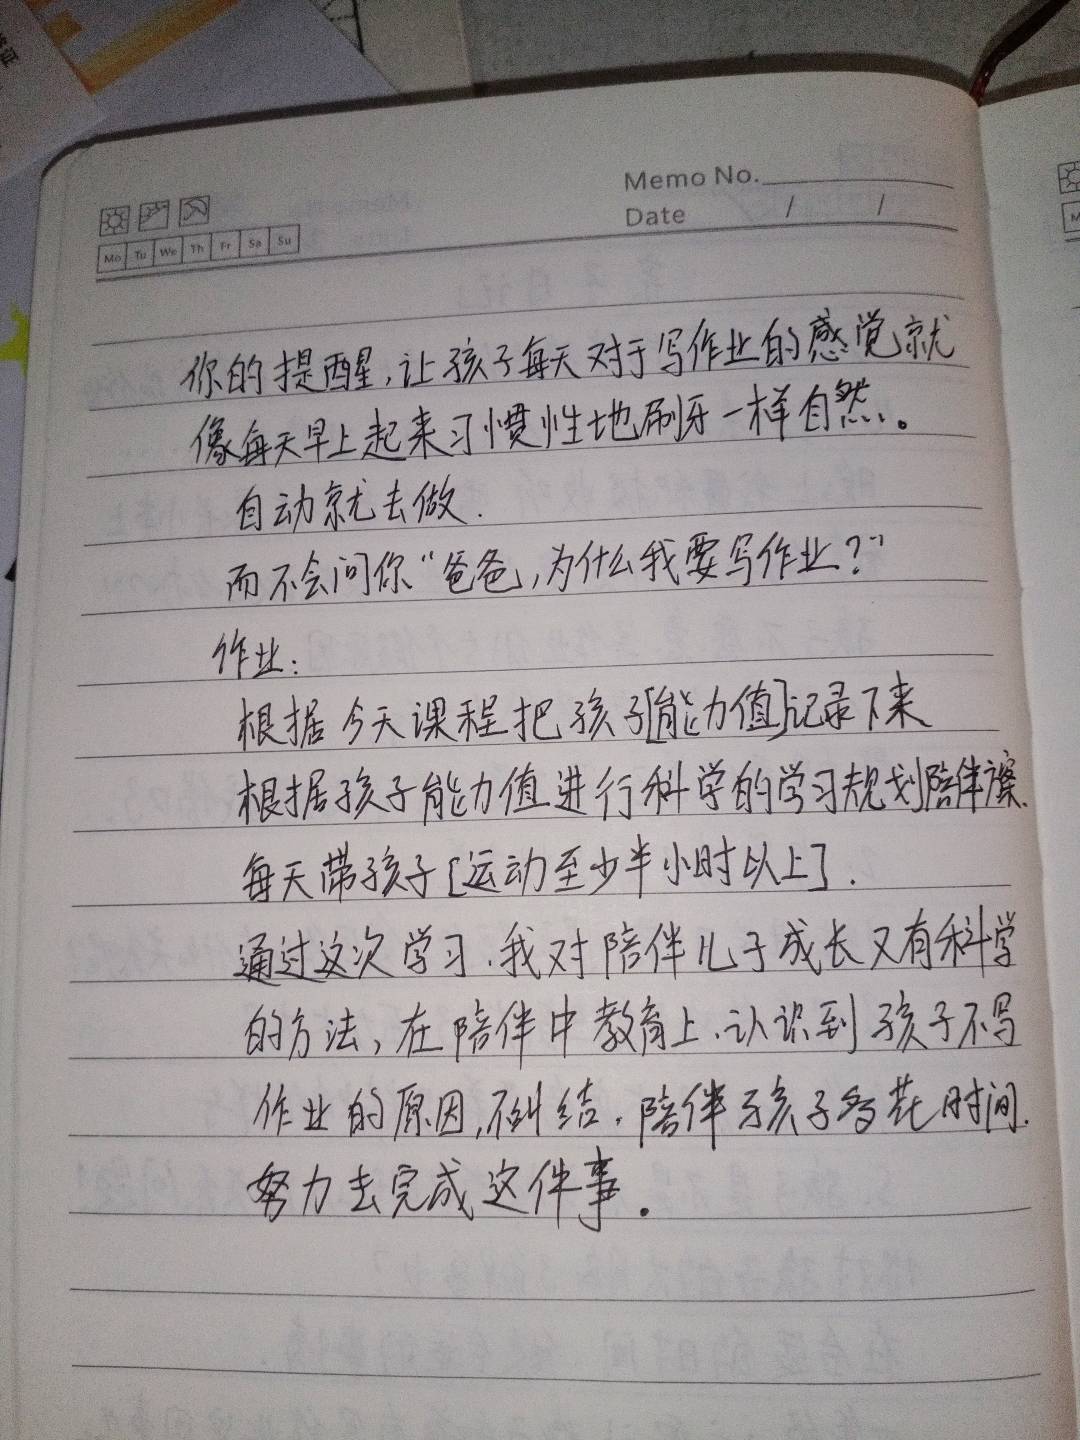 Memo No.
Date / /
Mo Tu We Th Fr Sa Su
你的提醒,让孩子每天对于写作业的感觉就
像每天早上起来习惯性地刷牙一样自然。
自动就去做.
而不会问你“爸爸,为什么我要写作业?”
作业:
根据今天课程把孩子[能力值]记录下来
根据孩子能力值进行科学的学习规划陪伴
每天带孩子[运动至少半小时以上].
通过这次学习.我对陪伴儿子成长又有科学
的方法,在陪伴中教育上.认识到孩子不写
作业的原因,不纠结.陪伴孩子多花时间.
努力去完成这件事.